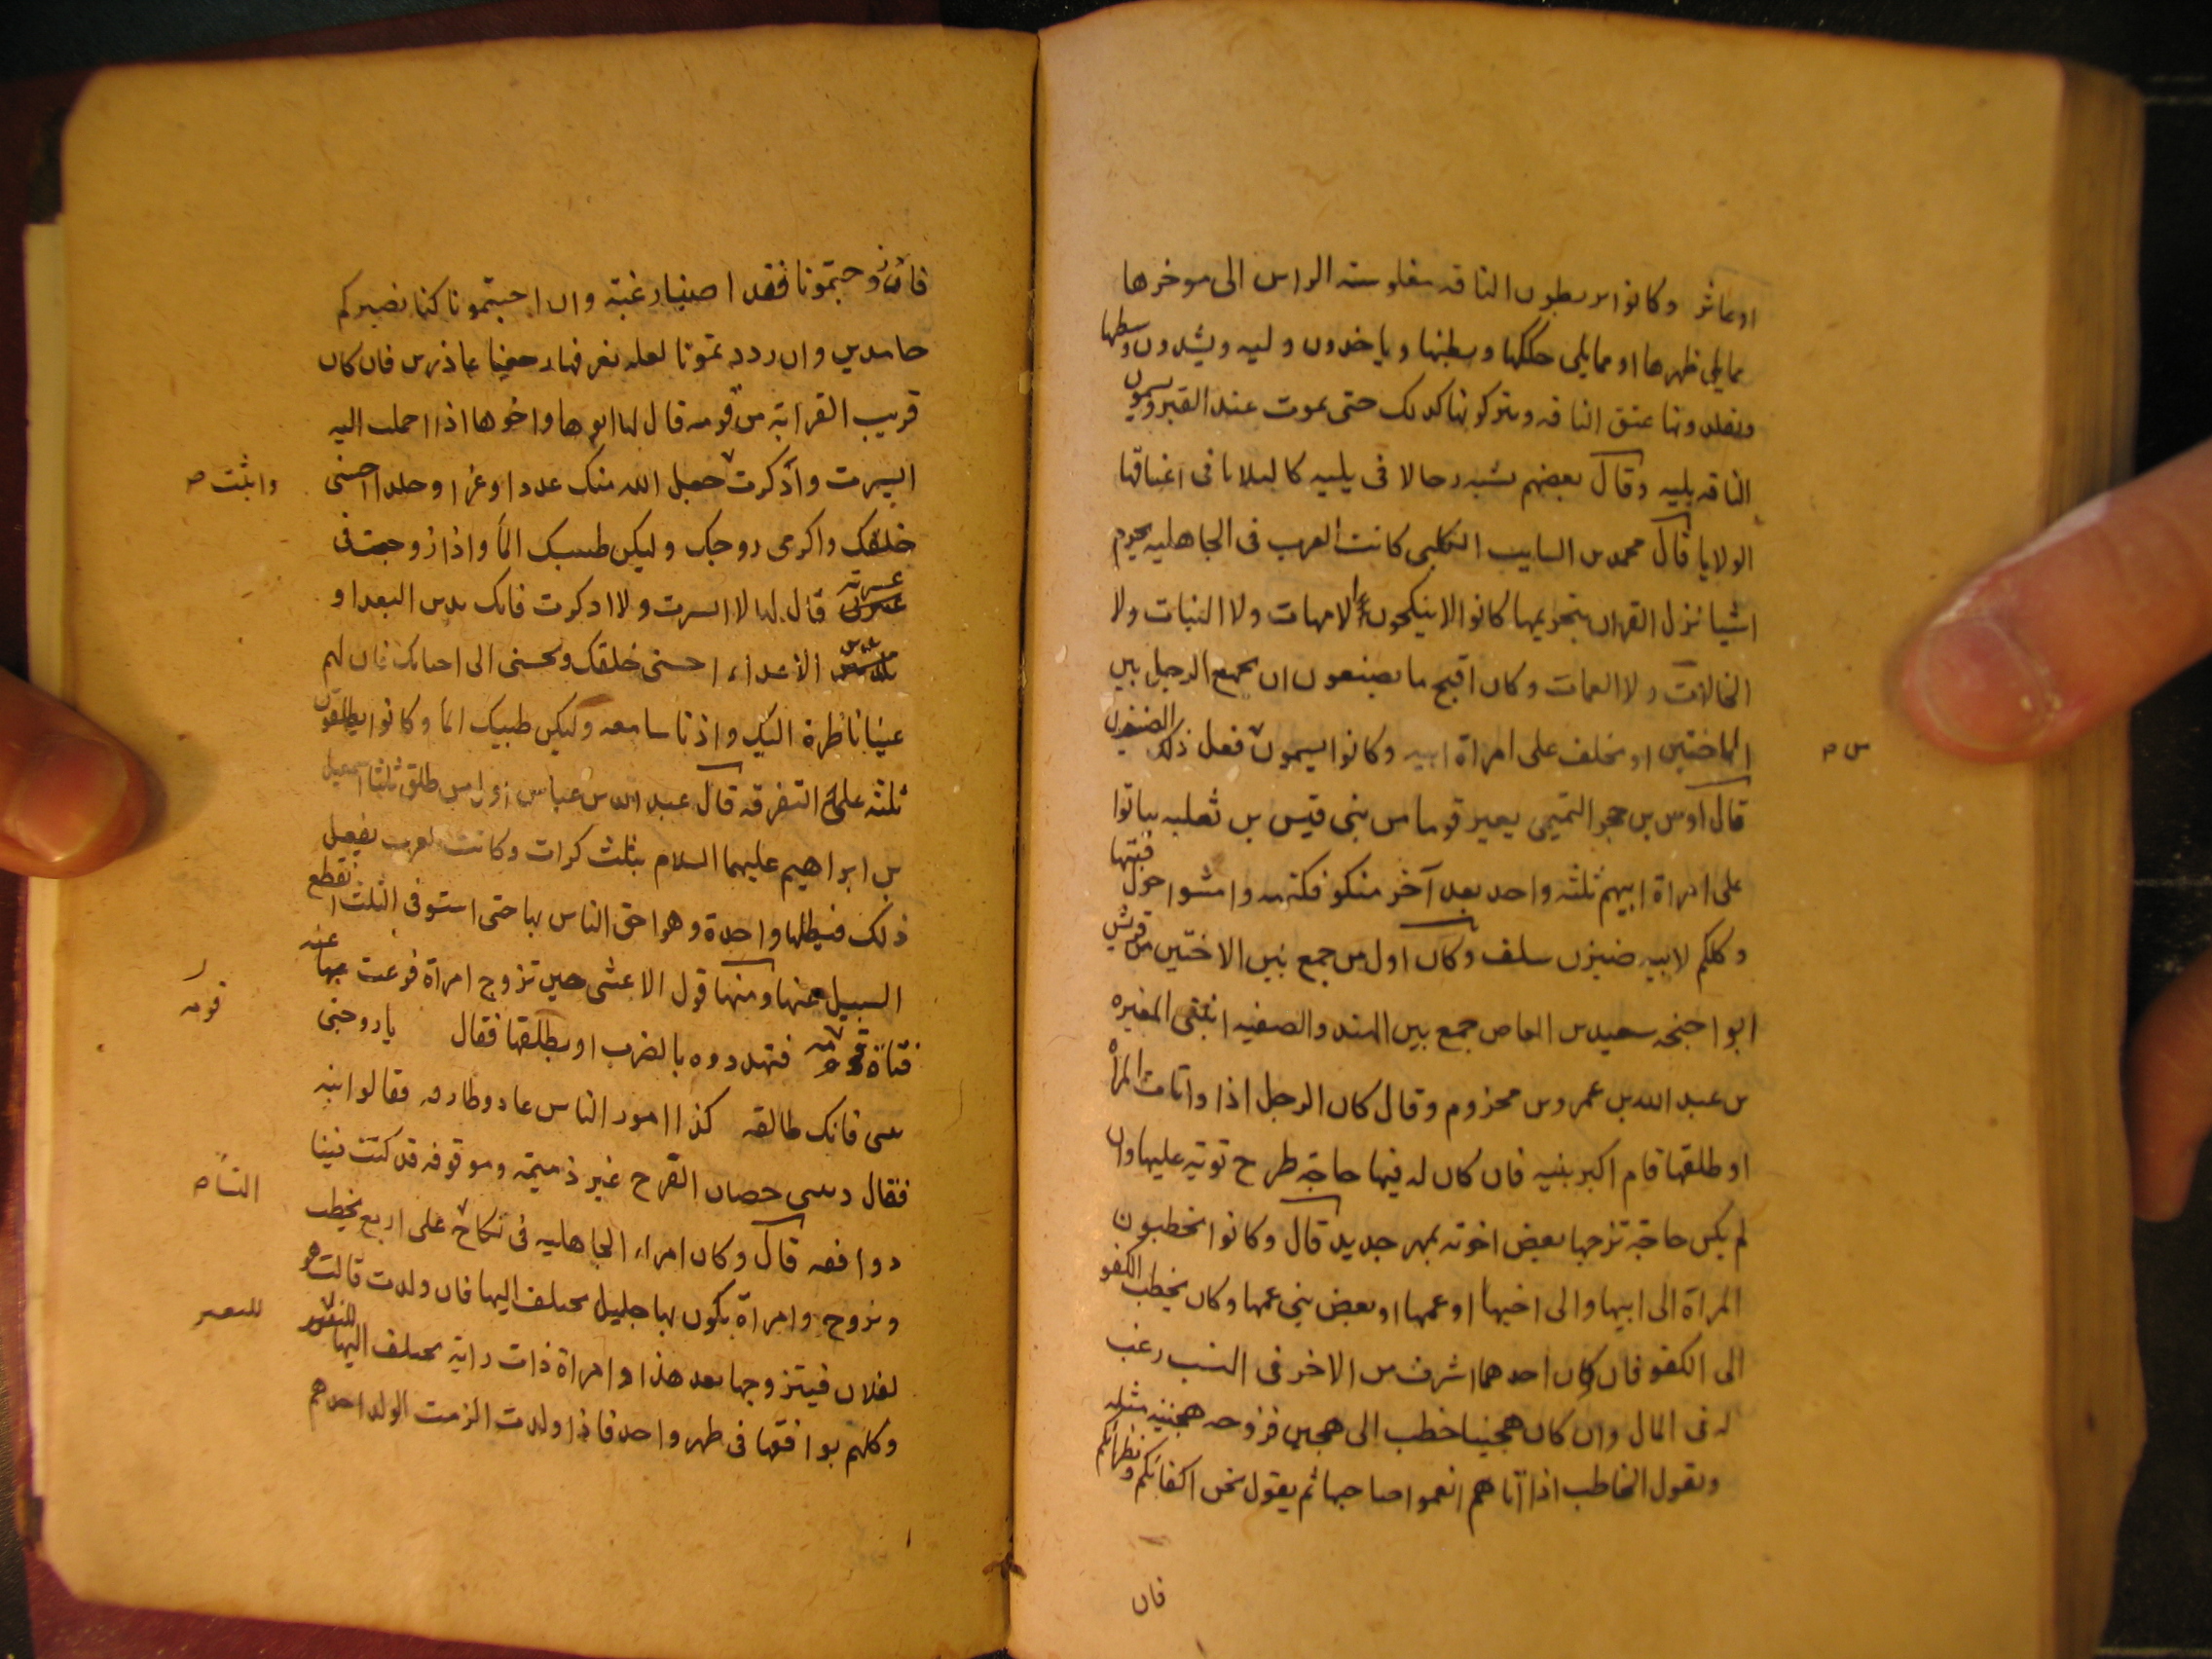 او عاثر وكانوا يربطون الناقه معلوسته الراس الى موخرها
مما يلى ظهرها او مما يلى حككها وبطنها وياخذون وليه ويشدون وسطها
ويقلدونها عنق الناقه ويتركونها كذلك حتى يموت عند القبر ويسمون
الناقه بليه وقال بعضهم يشبه رجالا فى بليه كالبلايا فى اعناقها
الولايا قال محمد بن السايب الكلبى كانت العرب فى الجاهليه يحرم
اشيا نزل القران بتحريمها كانوا لا ينكحون الامهات ولا البنات ولا
الخالات ولا العمات وكان اقبح ما يصنعون ان يجمع الرجل بين
الاختين او يخلف على امراة ابيه وكانوا يسمون فعل ذلك الضيزن
س ص
قال اوس بن حجر التميمى يعير قوما من بنى قيس بن ثعلبه بباتوا
على امراة ابيهم ثلثه واحد بعد آخر منكو فكهه وامشوا حول قبتها
وكلكم لابيه ضيزن سلف وكان اول من جمع بين الاختين من قريش
ابو احيحه سعيد بن العاص جمع بين الهند والصفيه ابنتى المغيره
بن عبد الله بن عمرو بن مخزوم وقال كان الرجل اذا واتات المراة
او طلقها قام اكبر بنيه فان كان له فيها حاجة طرح ثوبه عليها وان
لم يكن حاجة تزوجها بعض اخوته بمهر جديد قال وكانوا يخطبون
المراة الى ابيها والى اخيها او عمها او بعض بنى عمها وكان يخطب الكفو
الى الكفو فان كان احدهما اشرف من الاخر فى النسب رغب
له فى المال وان كان هجينا خطب الى هجين فزوجه هجينه مثله
ويقول الخاطب اذا اتاهم انعموا صباحا ثم يقول نحن اكفائكم ونظرائكم
فان
فان زوجتمونا فقد اصبنا رغبة وان احبتمونا كنا نصيركم
حامدين وان رددتمونا لعله نعرفها رجعنا عاذرين فان كان
قريب القرابة من قومه قال لها ابوها واخوها اذا احملت اليه
ايسرت واذكرت جعل الله منك عددا وعزا وجلدا احسنى
وانثت ص
خلقك واكرمى زوجك وليكن طيبك الما واذا زوجت فى
غربة قال لها لا ايسرت ولا اذكرت فانك تدنين البعدا و
تلدين الاعداء احسنى خلقك وتحسنى الى احمائك فان لهم
عينا ناظرة اليك واذنا سامعه وليكن طيبك الما وكانوا يطلقون
ثلثه على التفرقه قال عبد الله بن عباس اول من طلق ثلثا اسمعيل
بن ابراهيم عليهما السلام بثلث كرات وكانت العرب يفعل
ذلك فيطلها واحدة وهو احق الناس بها حتى استوفى الثلث انقطع
السبيل عنها ومنها قول الاعشى حين تزوج امراة فرغب بها عنه
قومه
فتاة قومه فتهددوه بالضرب او يطلقها فقال يا روجتى
بينى فانك طالقه كذا امور الناس غاد وطارقه فقالوا ابنه
فقال وبينى حصان الفرج غير ذميمة وموقوفه قد كنت فينا
ووافقه قال وكان امراء الجاهليه فى نكاح على اربع يخطب
النساء ص
وتزوج وامراة يكون بها جليل يختلف اليها فان ولدت قالت هو
لفلان فيتزوجها بعد هذا وامراة ذات راية يختلف اليها
وكلهم يوافقها فى طهر واحد فاذا ولدت الزمت الولد احدهم